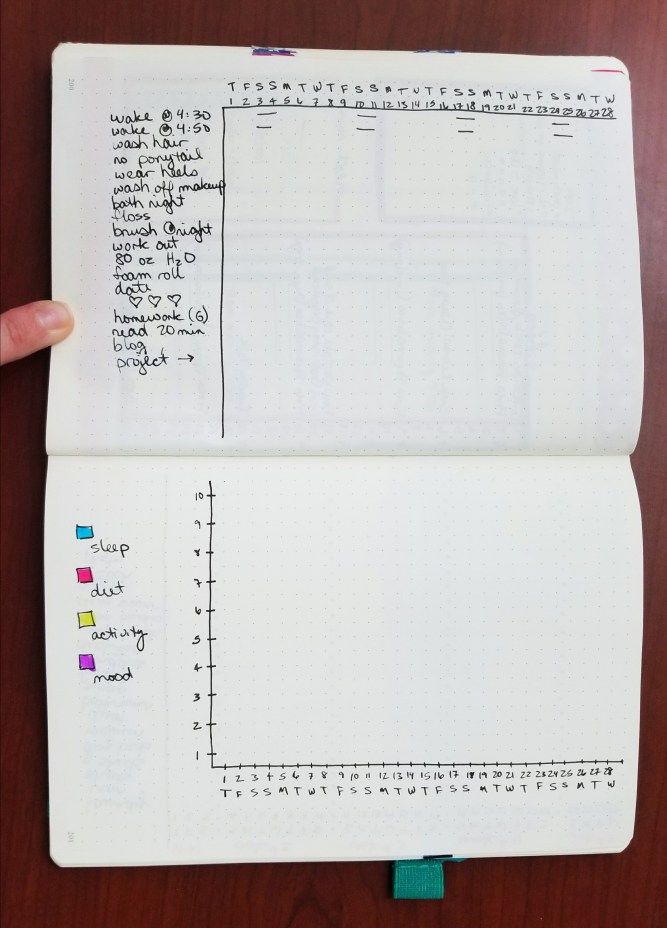 T F S S M T W T F S S M T W T F S S M T W T F S S M T W
1 2 3 4 5 6 7 8 9 10 11 12 13 14 15 16 17 18 19 20 21 22 23 24 25 26 27 28
wake @ 4:30
wake @ 4:50
wash hair
no ponytail
wear heels
wash off makeup
bath night
floss
brush @ night
work out
80 oz H2O
foam roll
date
♡ ♡ ♡
homework (G)
read 20 min
blog
project →
10
9
8
7
6
5
4
3
2
1
sleep
diet
activity
mood
1 2 3 4 5 6 7 8 9 10 11 12 13 14 15 16 17 18 19 20 21 22 23 24 25 26 27 28
T F S S M T W T F S S M T W T F S S M T W T F S S M T W